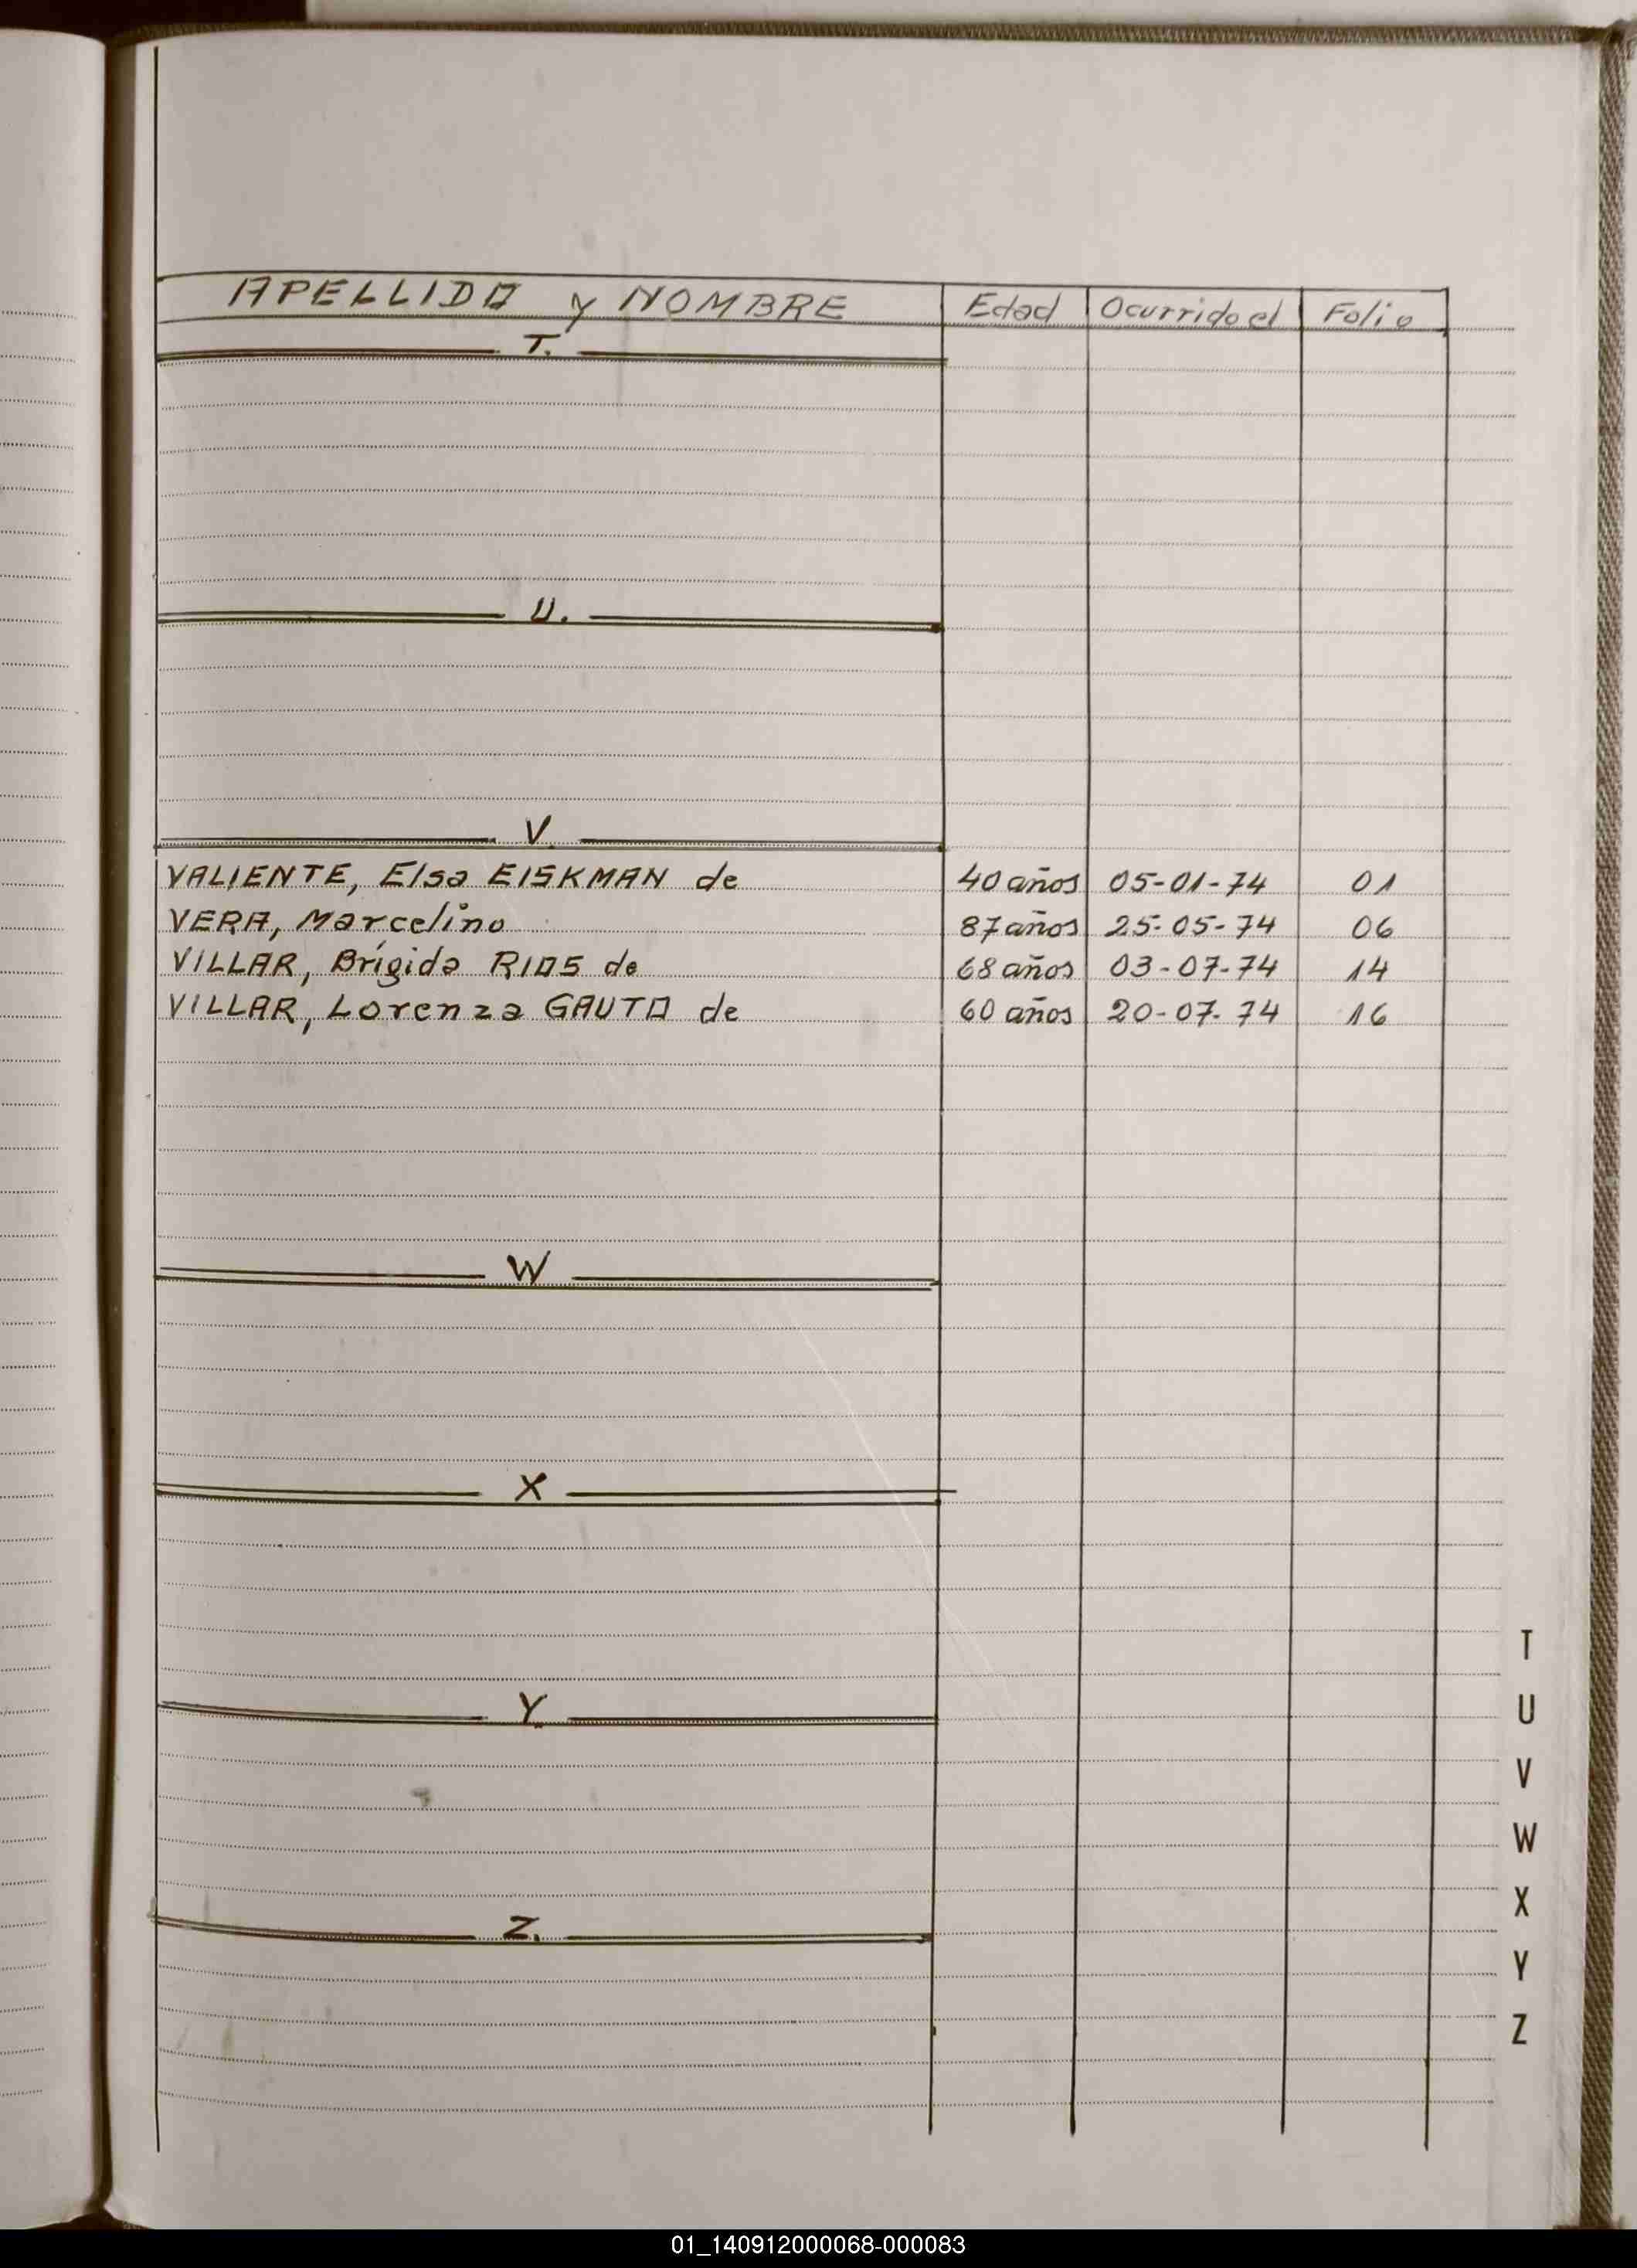 APELLIDO y NOMBRE Edad Ocurrido el Folio
T.
U.
V.
VALIENTE, Elsa EISKMAN de 40 años 05-01-74 01
VERA, Marcelino 87 años 25-05-74 06
VILLAR, Brígida RIOS de 68 años 03-07-74 14
VILLAR, Lorenza GAUTO de 60 años 20-07-74 16
W
X
Y.
Z.
T
U
V
W
X
Y
Z
01_140912000068-000083